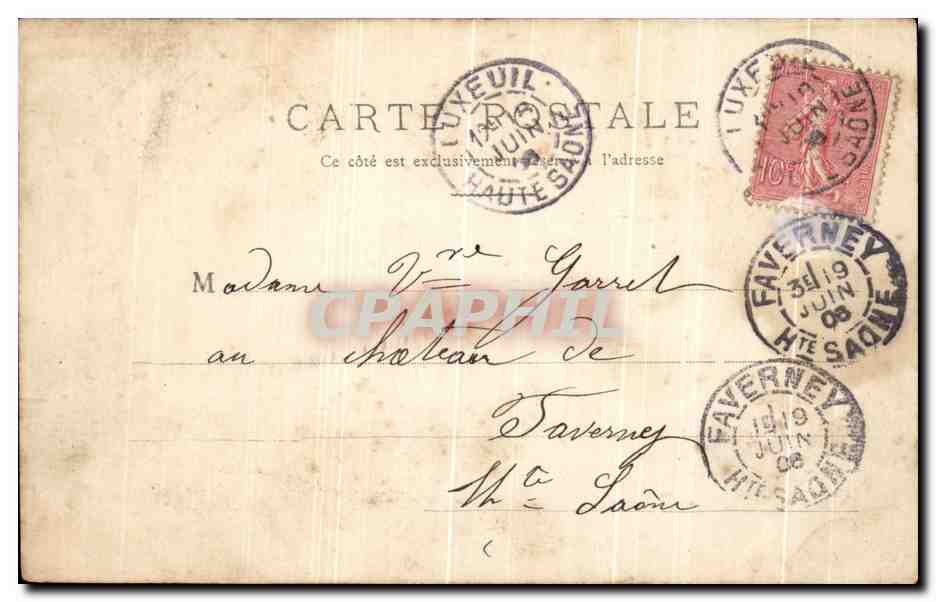 CARTE POSTALE
Ce côté est exclusivement réservé à l'adresse
LUXEUIL
JUIN
HAUTE SAONE
LUXEUIL
JUIN
SAONE
10
FAVERNEY
3E 19
JUIN
06
HTE SAONE
Madame Vve Garret
au château de
Faverney
Hte Saône
CPAPHIL
FAVERNEY
1E 19
JUIN
06
HTE SAONE